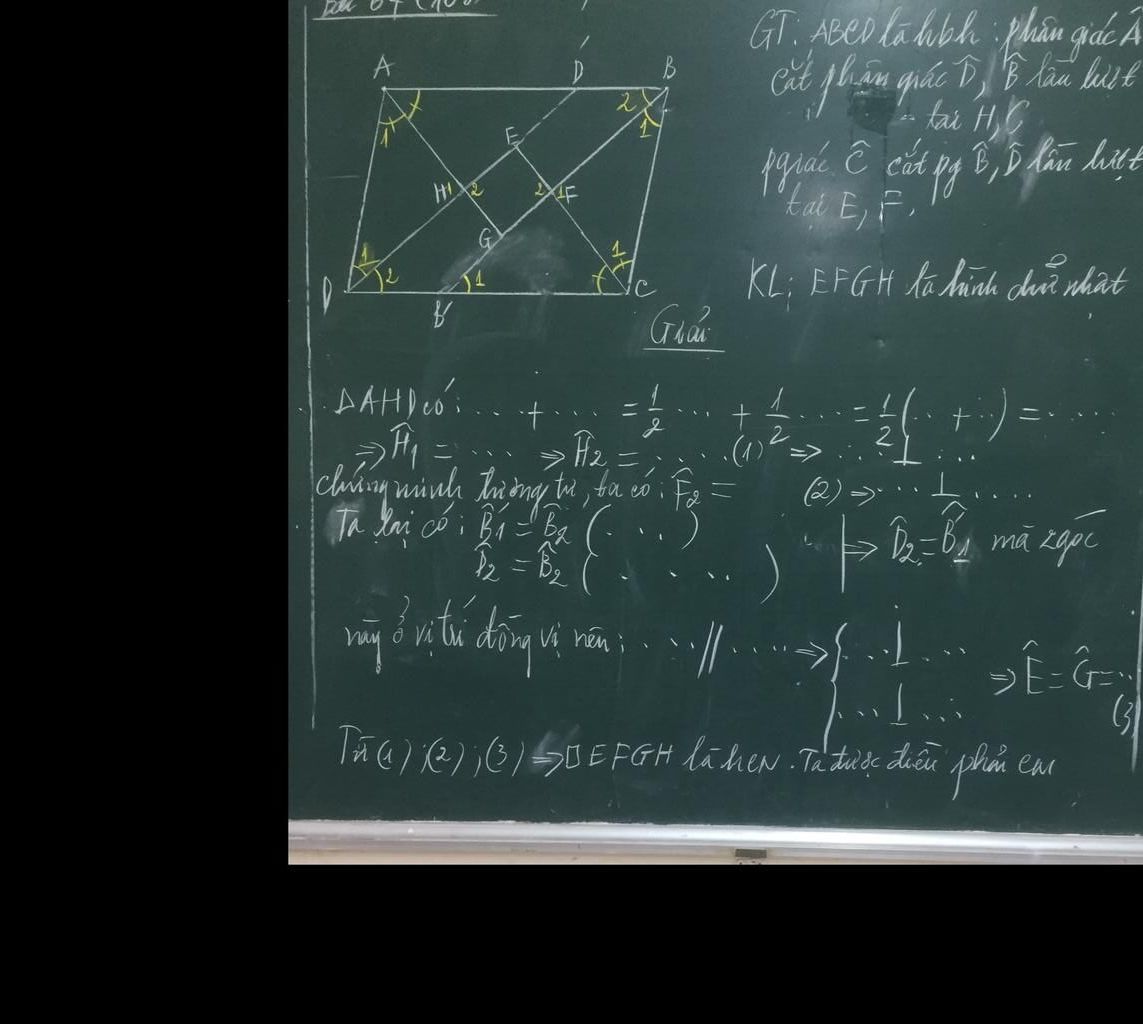 Bài 64 (100)
GT: ABCD là hbh : phân giác Â
cắt phân giác D̂, B̂ lần lượt
tại H, G
pgiác Ĉ cắt pg B̂, D̂ lần lượt
tại E, F.
KL: EFGH là hình chữ nhật
A D' B
1 2 1
E
H 1 2 2 1 F
G
1 2 1 1
D B' C
Giải
ΔAHD có: .... + .... = 1/2 ... + 1/2 .... = 1/2 (.. + ..) = .....
⇒ Ĥ1 = .... ⇒ Ĥ2 = ..... (1) ⇒ ... ⊥ ...
chứng minh tương tự, ta có: F̂2 = (2) ⇒ ... ⊥ ....
Ta lại có: B̂'1 = B̂2 (. ..) ⇒ D̂2 = B̂'1 mà 2 góc
D̂2 = B̂2 (. . ..)
này ở vị trí đồng vị nên: .... // .... ⇒ { ... ⊥ ... ⇒ Ê = Ĝ = ..
... ⊥ ... (3)
Từ (1); (2); (3) ⇒ □EFGH là hcn. Ta được điều phải cm